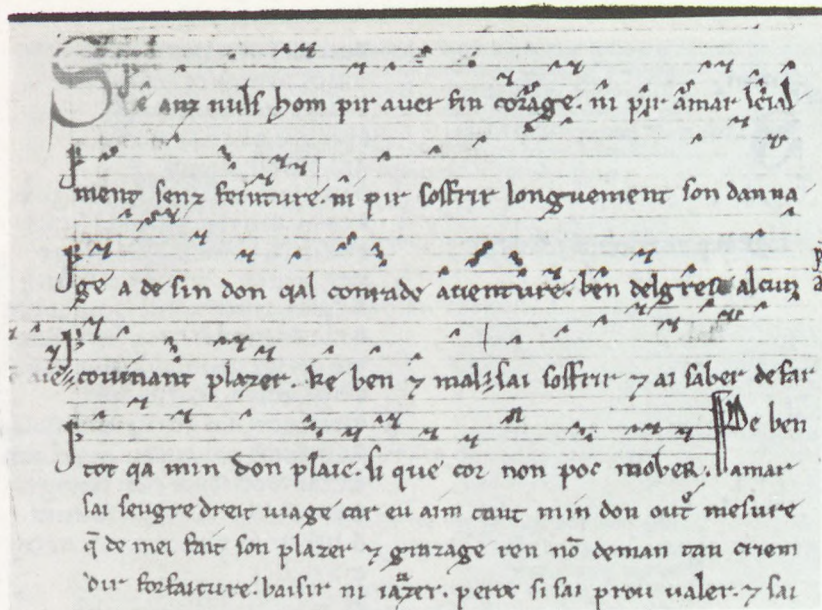 Si anz nuls hom pir aver fin corage. ni pir amar leial
ment senz feinture. ni pir soffrir longuement son danna
ge a de sin don qal conrade aventure. ben del gres alcun
covinant plazer. Ke ben ⁊ mals sai soffrir ⁊ ai saber de far
De ben
tot qa min don plaie. si que cor non poc mover. amar
sai sengre dreit viage car eu aim tant min don outr mesure
q̄ de mei fait son plazer ⁊ gnazage ren nō deman tan criem
dir forfaiture. baisir ni iazer. peroc si sai prou valer. ⁊ sai